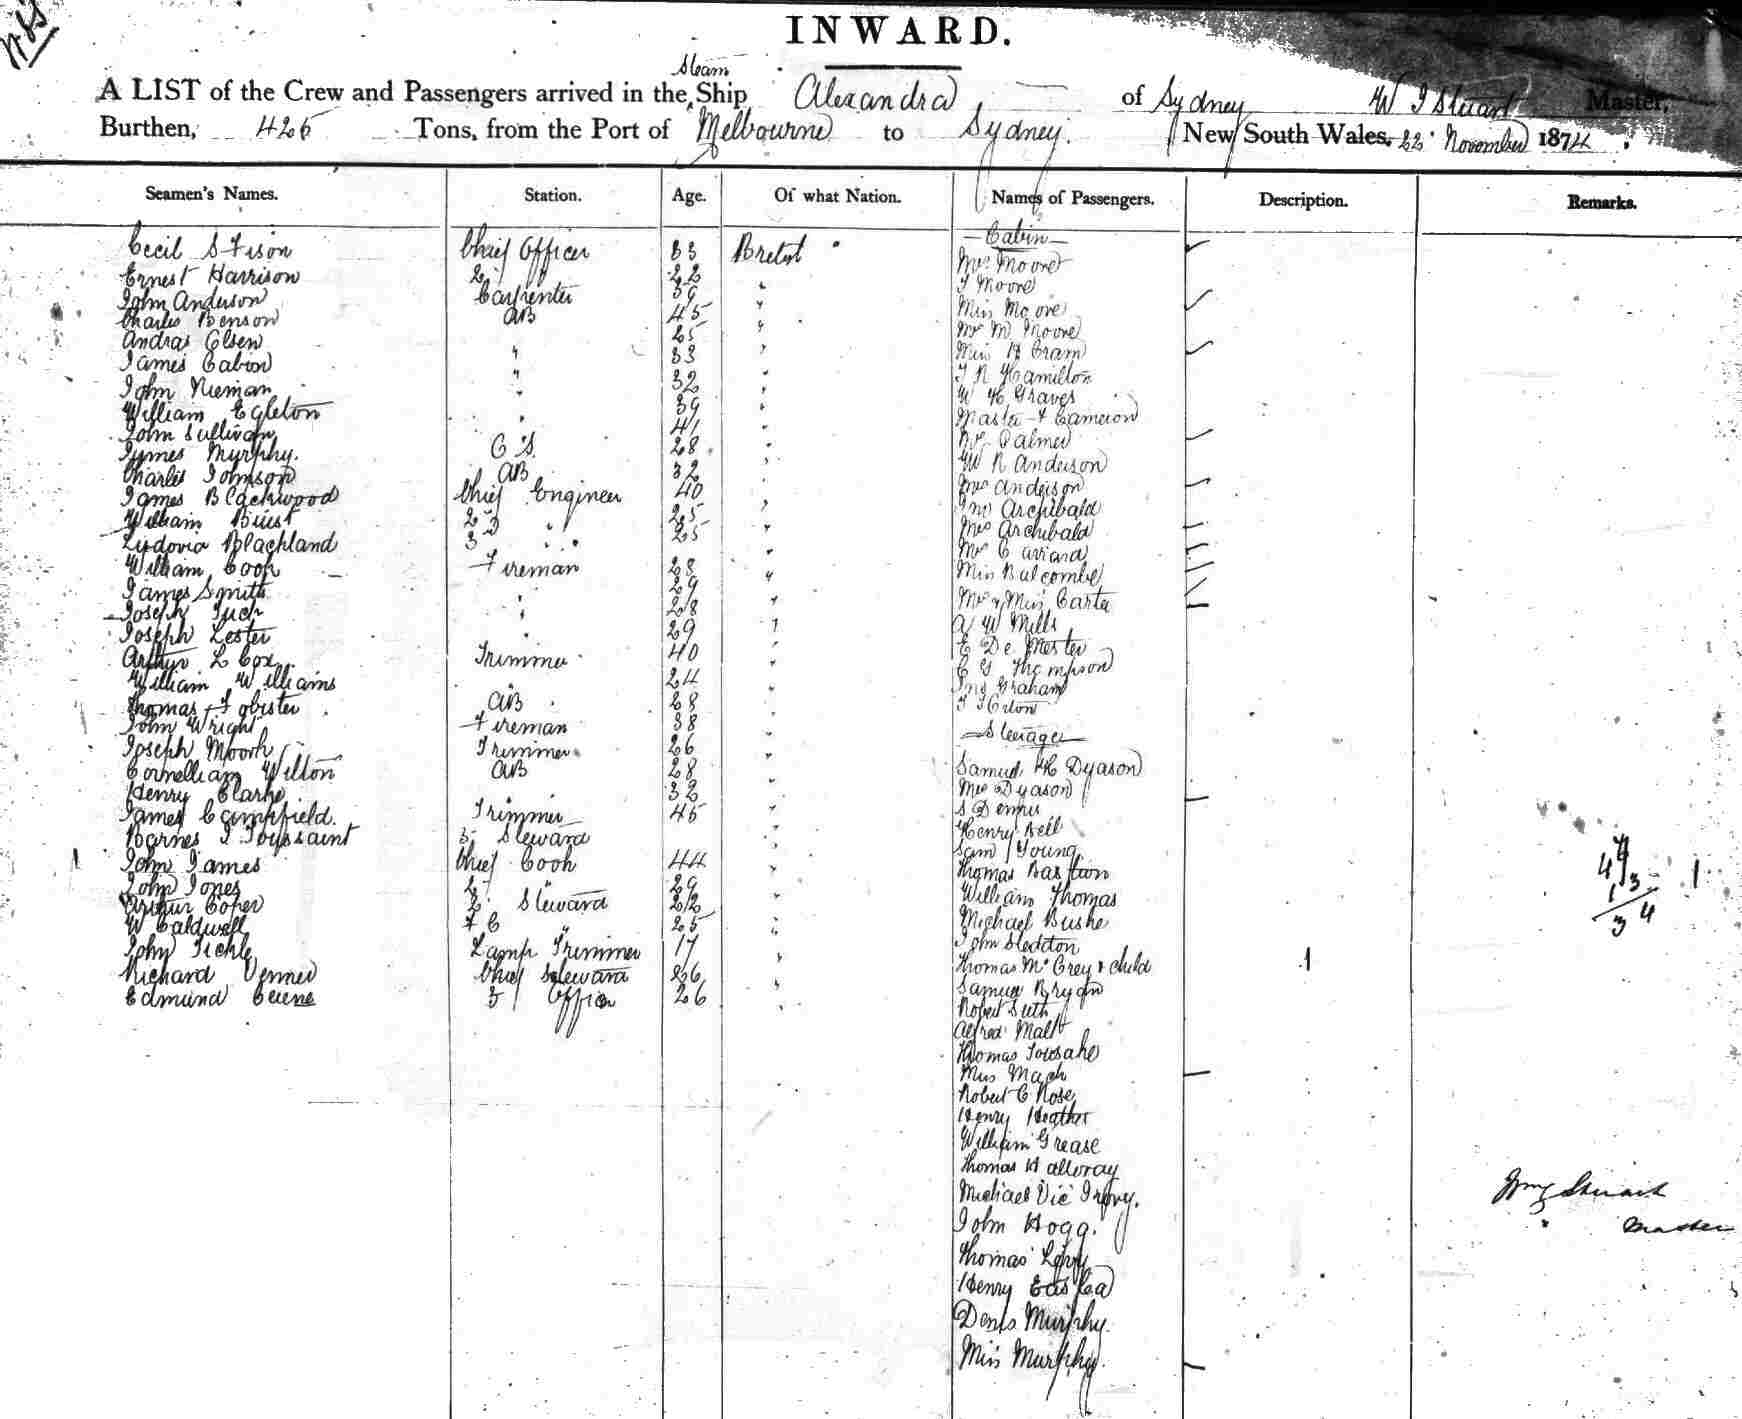 INWARD.
Steam
A LIST of the Crew and Passengers arrived in the Ship Alexandra of Sydney W J Stuart Master,
Burthen, 425 Tons, from the Port of Melbourne to Sydney. New South Wales. 22 November 1874.
Seamen's Names. Station. Age. Of what Nation. Names of Passengers. Description. Remarks.
Cecil S Fison Chief Officer 33 British
Ernest Harrison 2 " 22 "
John Anderson Carpenter 39 "
Charles Benson AB 45 "
Andras Olsen " 25 "
James Cabion " 33 "
John Nieman " 32 "
William Egleton " 39 "
John Sullivan " 41 "
James Murphy. O S. 28 "
Charles Johnson AB 32 "
James Blackwood Chief Engineer 40 "
William Buist 2D " 25 "
Blackland 3 " 25 "
William Cook Fireman 28 "
James Smith " 29 "
Joseph " 28 "
Joseph Lester " 29 "
Arthur L Cox Trimmer 40 "
William Williams " 24 "
Thomas Fobister AB 28 "
John Wright Fireman 38 "
Joseph Trimmer 26 "
Wilton AB 28 "
Henry Clarke " 32 "
James Campfield. Trimmer 45 "
Barnes J Toussaint 3 Steward
John James Chief Cook 44 "
John Jones 2 " 29 "
Arthur Coper 2 Steward 22 "
W Caldwell F C 25 "
John Tickle Lamp Trimmer 17 "
Richard Chief Steward 26 "
Edmund 3 Officer 26 "
Cabin
Mrs Moore
T Moore
Miss Moore
Mr M Moore
Miss H Cram
J R Hamilton
W H Graves
Master F Cameron
Mrs Palmer
W R Anderson
Mrs Anderson
Jno Archibald
Mrs Archibald
Mrs C
Miss Balcombe
Mrs & Miss Carter
A W Mills
E De Mester
C G Thompson
Jno Graham
J J Orton
Steerage
Samuel H Dyason
Mrs Dyason
S
Henry Bell
Sam Young
Thomas Bastion
William Thomas
Michael Bushe
John Sleddon
Thomas McCrey & child 1
Samuel Bryan
Robert Suth
Alfred Malt
Thomas
Mrs Mack
Robert C Rose
Henry Heather
William Grease
Thomas Halloray
Michael
John Hogg.
Thomas
Henry
Denis Murphy.
Miss Murphy.
1
4
3
1
34
1
Stuart
Master